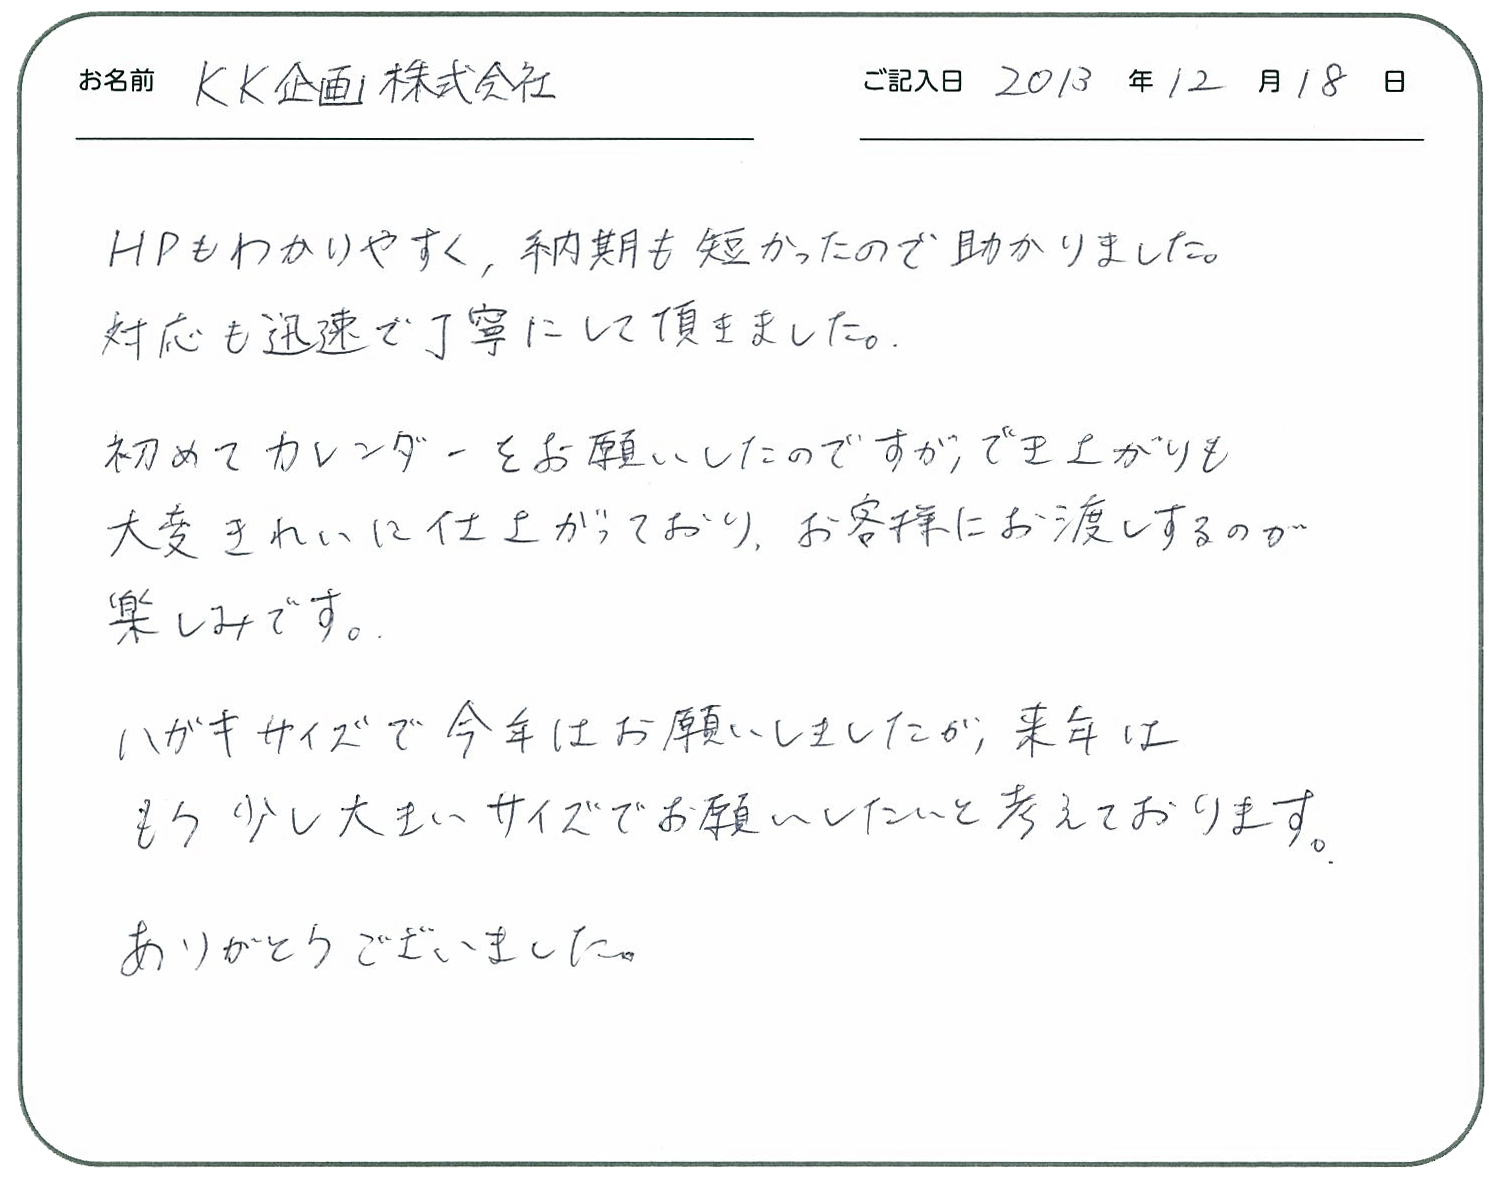 お名前 KK企画株式会社 ご記入日 2013 年 12 月 18 日
HPもわかりやすく,納期も短かったので助かりました。
対応も迅速で丁寧にして頂きました。
初めてカレンダーをお願いしたのですが,でき上がりも
大変きれいに仕上がっており,お客様にお渡しするのが
楽しみです。
ハガキサイズで今年はお願いしましたが,来年は
もう少し大きいサイズでお願いしたいと考えております。
ありがとうございました。